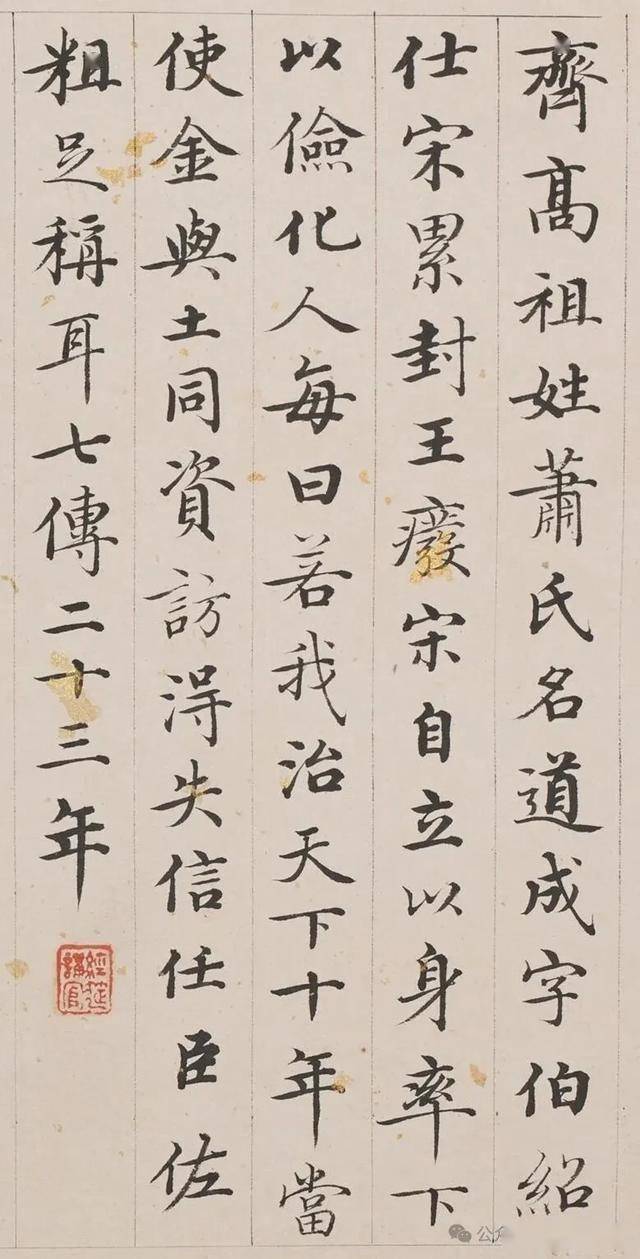 齊高祖姓蕭氏名道成字伯紹
仕宋累封王廢宋自立以身率下
以儉化人每曰若我治天下十年當
使金與土同資訪得失信任臣佐
粗足稱耳七傳二十三年
經筵講官
公